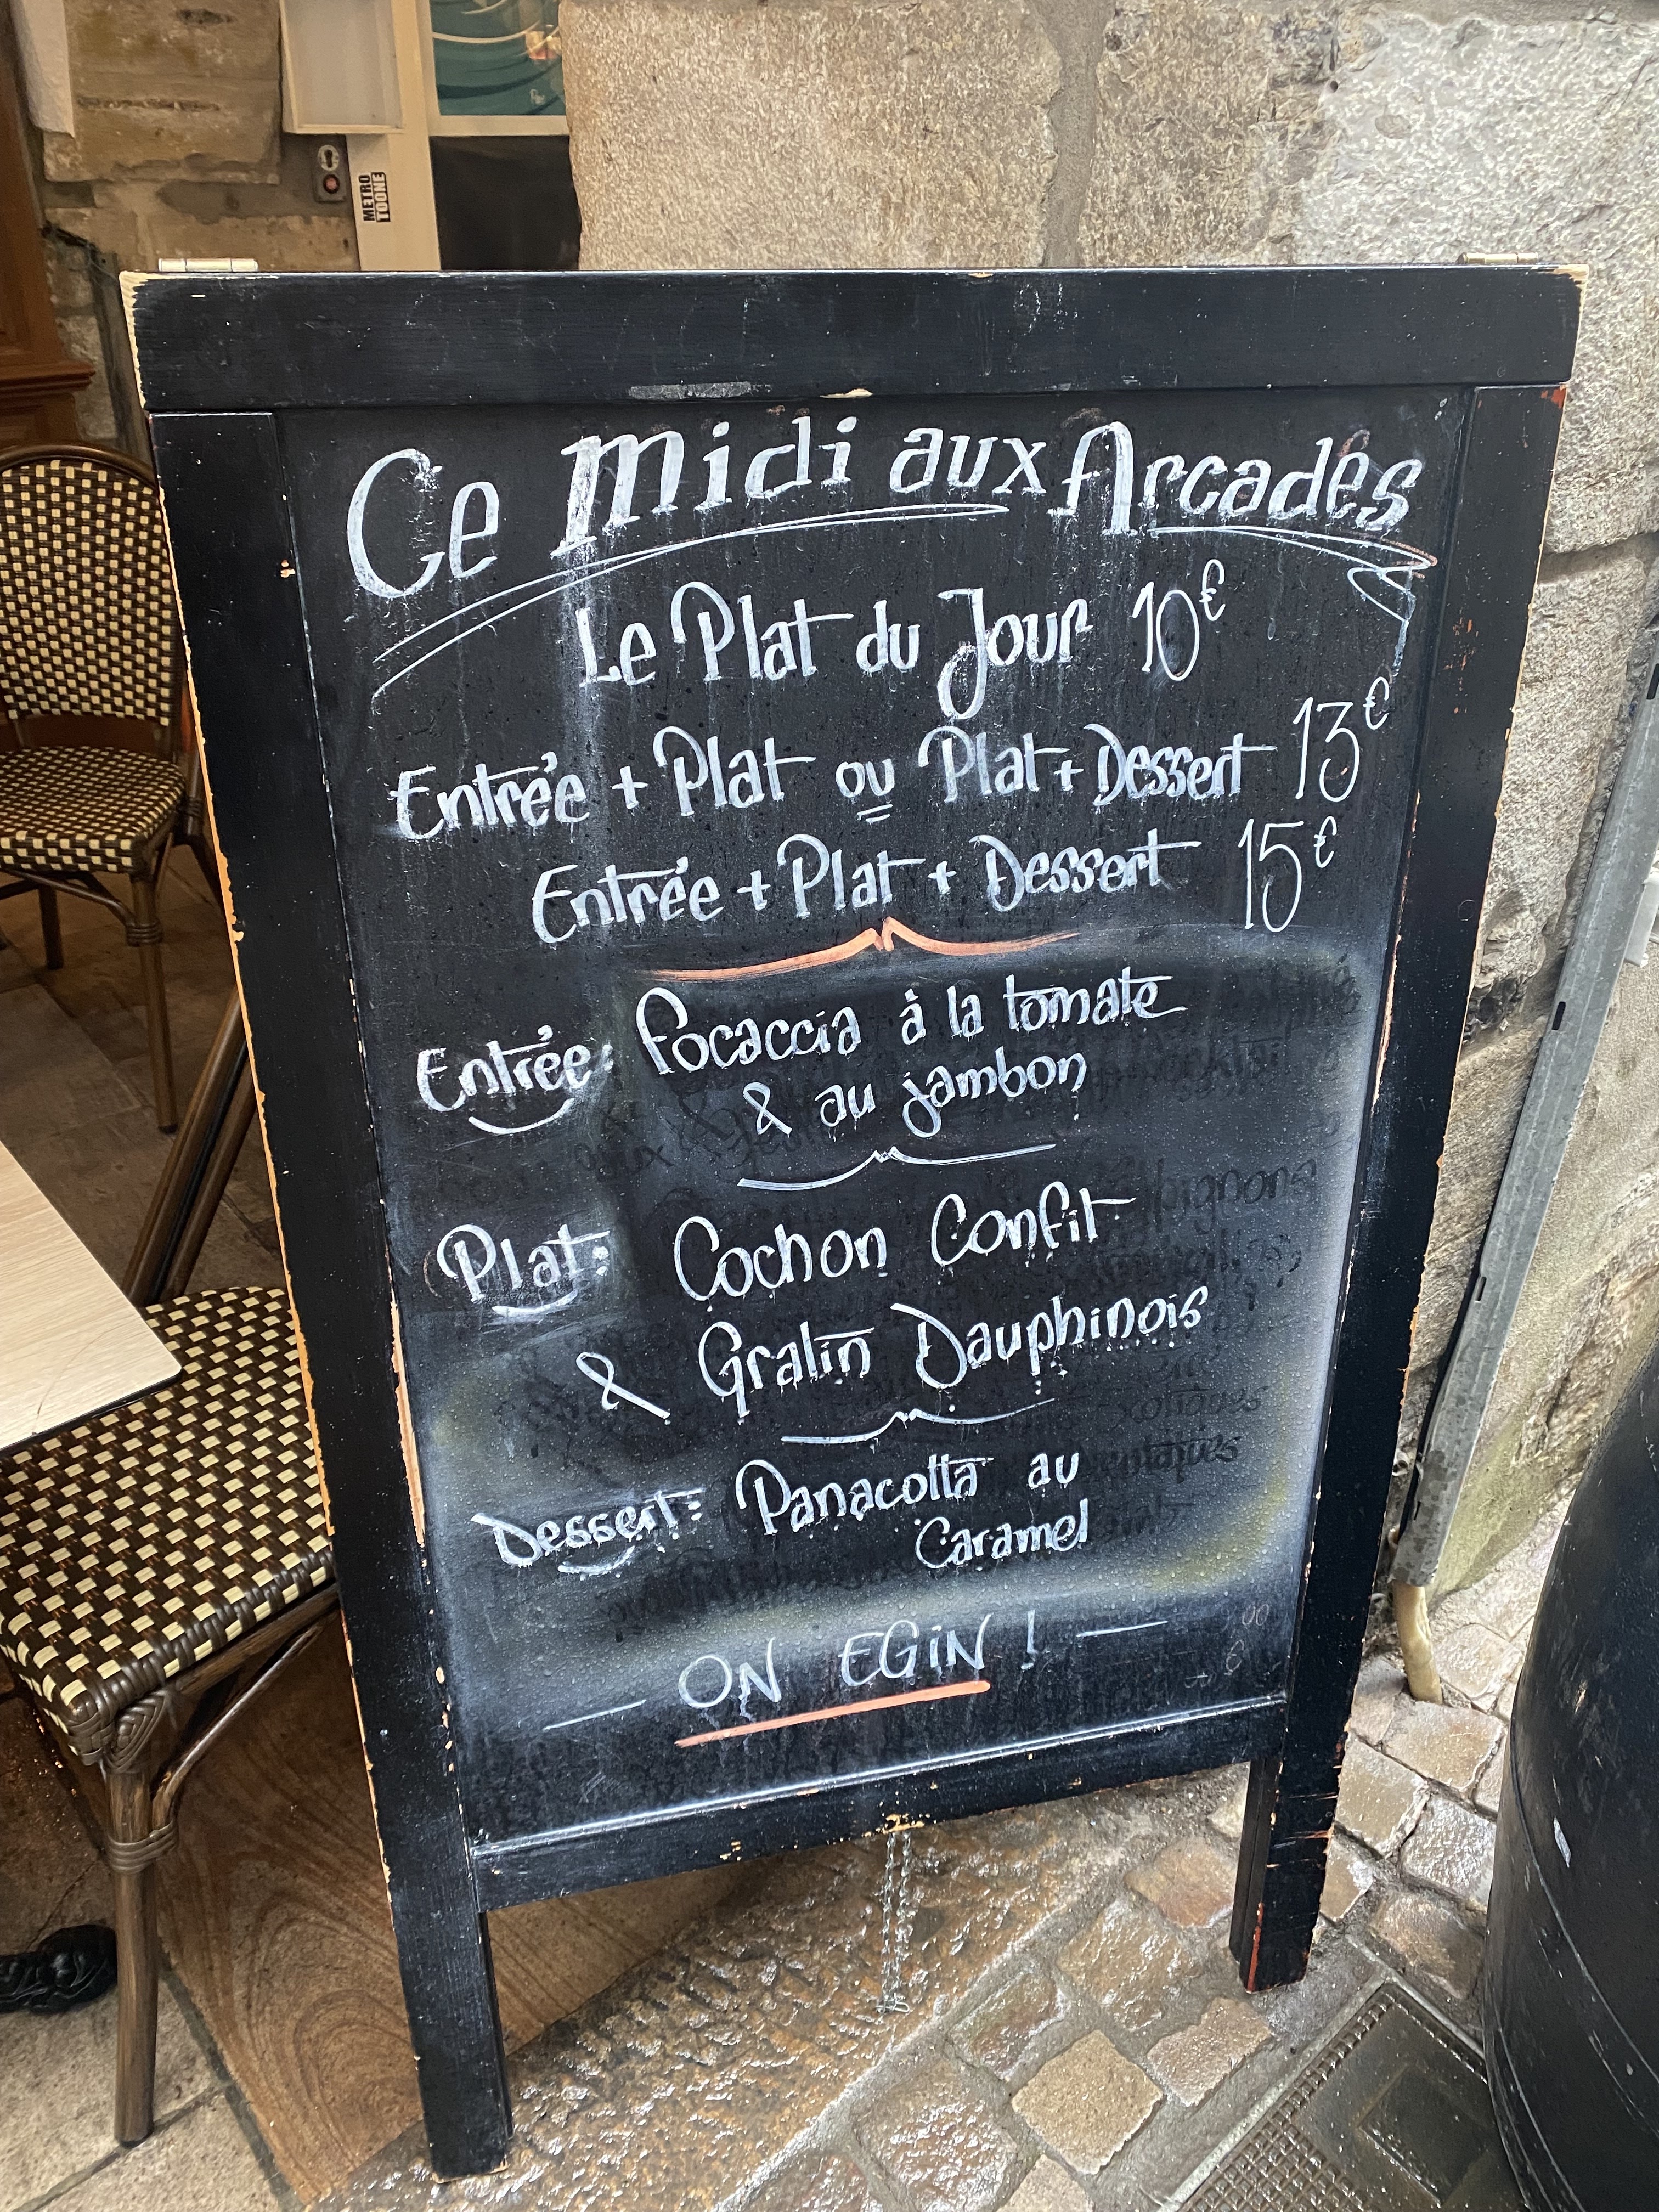 METRO
TOONE
Ce Midi aux Arcades
Le Plat du Jour 10€
Entrée + Plat ou Plat + Dessert 13€
Entrée + Plat + Dessert 15€
Entrée: Focaccia à la tomate
& au jambon
Plat: Cochon Confit
& Gratin Dauphinois
Dessert: Panacotta au
Caramel
ON EGiN !